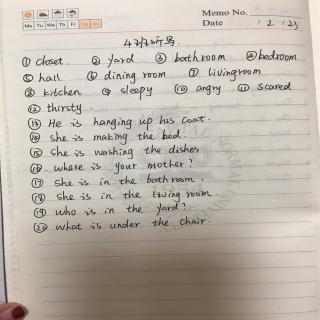 Memo No.
Mo Tu We Th Fr Sa Su
Date 1 2 / 23
① closet. ② yard ③ bathroom ④ bedroom
⑤ hall ⑥ dining room ⑦ livingroom
⑧ kitchen ⑨ sleepy ⑩ angry ⑪ scared
⑫ thirsty.
⑬ He is hanging up his coat.
⑭ she is making the bed.
⑮ she is washing the dishes
⑯ where is your mother?
⑰ she is in the bathroom.
⑱ she is in the living room.
⑲ who is in the yard?
⑳ what is under the chair.